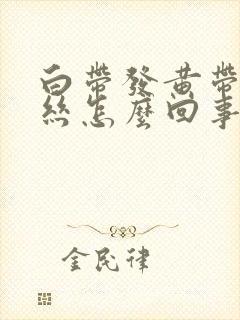 白帶發黃帶
絲怎麼回事
金民律